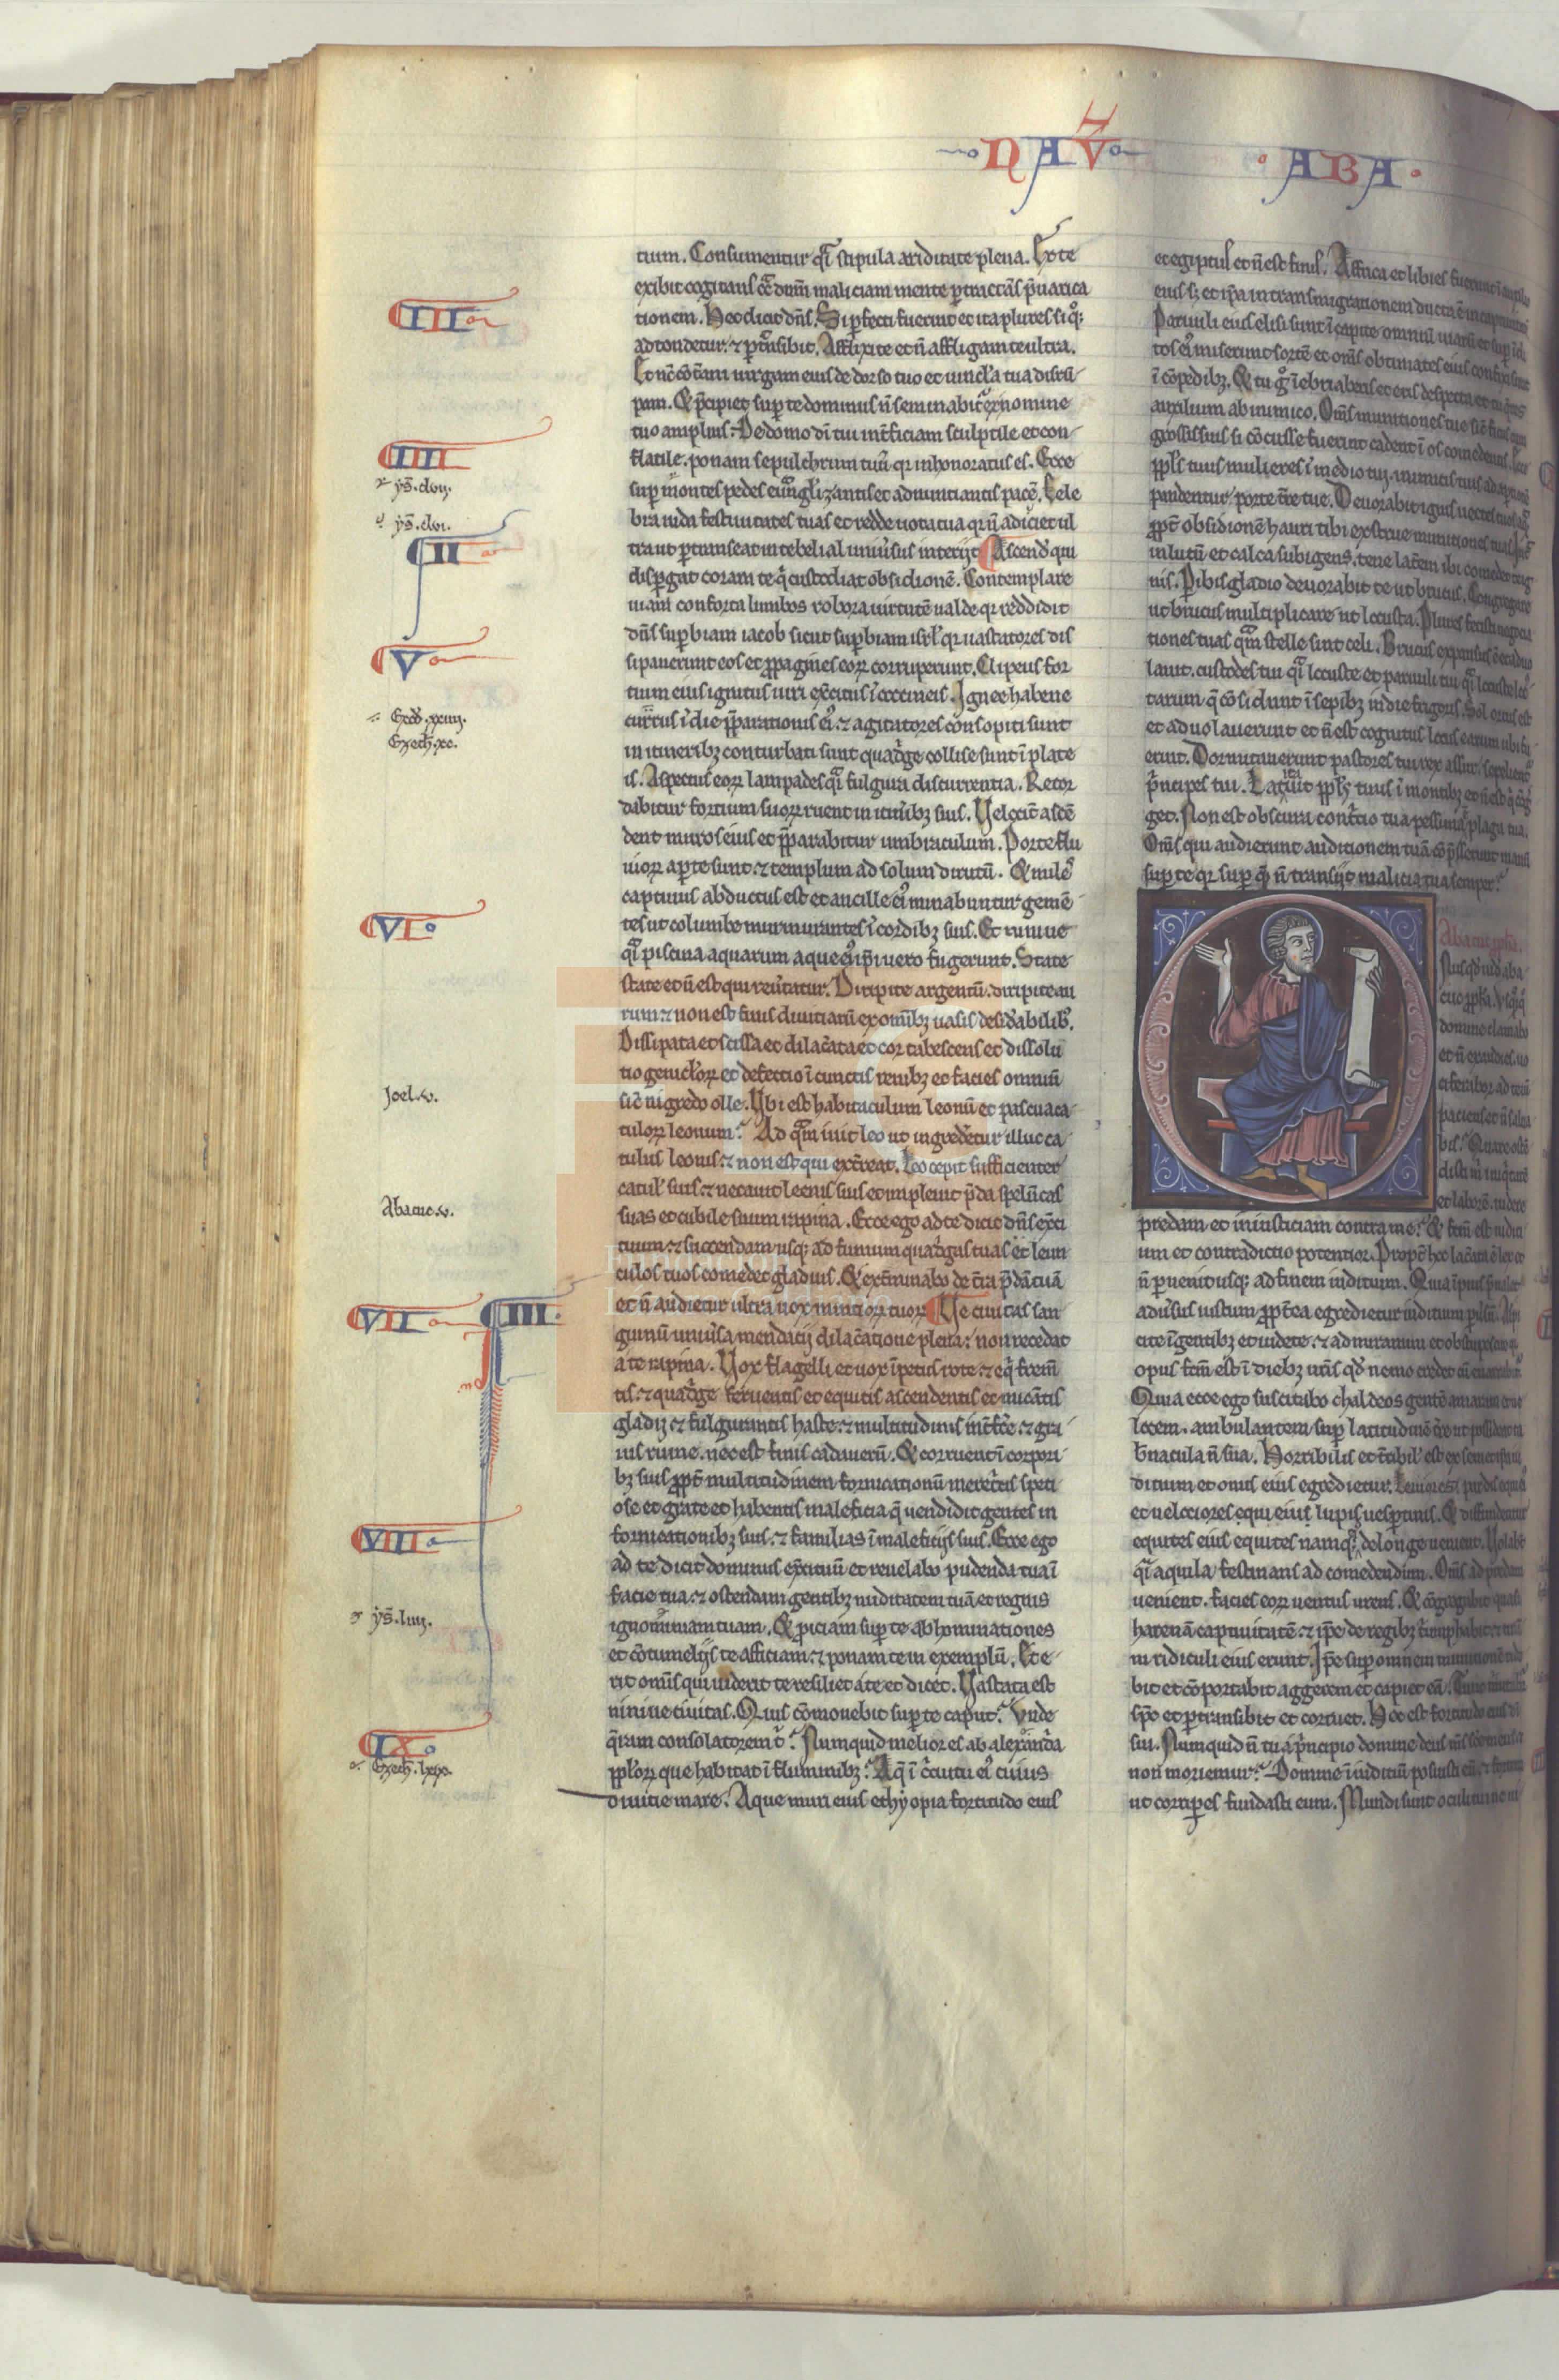 NAV
ABA
III
IIII
ys. clvii.
ys. clvi.
II
V
Exod. xxiii.
Ezech. xc.
VI
Joel. v.
Abacuc. v.
VII
III
VIII
ys. liiii.
IX
Ezech. lxix.
tium. Consumentur qͣi stipula ariditate plena. Ex te
exibit cogitans cͣ dn̄m maliciam mente ꝑtractās p̄uarica
tionem. Hec dicit dn̄s. Si ꝑfecti fuerint et ita plures si qͦꝫ
adtondētur. ⁊ ꝑtͣnsibit. Afflixi te et n̄ affligam te ultra.
Et nc̄ cōtͣam uirgam eius de dorso tuo et uincl̓a tua disrū
pam. Et p̄cipiet suꝑ te dominus n̄ seminabit͛ ex nomine
tuo amplius. De domo dī tui int̄ficiam sculptile et con
flatile. ponam sepulchrum tuū qr inhonoratus es. Ecce
suꝑ montes pedes euͣngl̓izantis et adnuntiantis pacē. Cele
bra iuda festiuitates tuas et redde uota tua qr n̄ adiciet ul
tra ut ꝑtranseat in te belial uniu͛sus interijt. Ascend͛ qui
disꝑgat coram te qͥ custodiat obsidionē. Contemplare
uiam conforta lumbos robora uirtutē ualde qr reddidit
dn̄s suꝑbiam iacob sicut suꝑbiam isrl̓ qr uastatores dis
sipauerunt eos et ꝓpagines eoꝝ corruperunt. Clipeus for
tium eius ignitus uiri exc̄itus ī coccineis. Ignee habene
currus ī die p̄parationis eiꝰ. ⁊ agitatores consopiti sunt
in itineribꝫ conturbati sunt quadͥge collise sunt ī plate
is. Aspectus eoꝝ lampades qͣi fulgura discurrentia. Recor
dabitur fortium suoꝝ ruent in itin̄ibꝫ suis. Velocit̄ ascē
dent muros eius et p̄parabitur umbraculum. Porte flu
uioꝝ aꝑte sunt. ⁊ templum ad solum dirutū. Et miles
captiuus abductus est et ancille eiꝰ minabuntur gemē
tes ut columbe murmurantes ī cordibꝫ suis. Et niniue
qͣi piscina aquarum aque eiꝰ ip̄i uero fugerunt. State
state et n̄ est qui reu͛tatur. Diripite argentū. diripite au
rum. ⁊ non est finis diuitiarū ex omībꝫ uasis desid͛abilibꝰ.
Dissipata et scissa et dilac̄ata et cor tabescens et dissolu
tio genicl̓oꝝ et defectio ī cunctis renibꝫ et facies omnium
sic̄ nigredo olle. Vbi est habitaculum leonū et pascua ca
tuloꝝ leonum? Ad qͣm iuit leo ut ingred͛etur illuc ca
tulus leonis. ⁊ non est qui ext͛reat. Leo cepit sufficienter
catul̓ suis. ⁊ necauit leenis suis et impleuit p̄da speluncas
suas et cubile suum rapina. Ecce ego ad te dicit dn̄s exc̄i
tuum. ⁊ succendam usqꝫ ad fumum quadͥgas tuas et leun
culos tuos comedet gladius. Et ext͛minabo de t͛ra p̄dā tuā
et n̄ audietur ultra uox nuntioꝝ tuoꝝ. Ve ciuitas san
guinū uniu͛sa mendacij dilac̄atione plena. non recedet
a te rapina. Vox flagelli et uox īpetus rote. ⁊ eqͥ frem̄
tis. ⁊ quadͥge feruentis et equitis ascendentis et micātis
gladij ⁊ fulgurantis haste. ⁊ multitudinis int̄fc̄e. ⁊ gra
uis ruine. nec est finis cadauerū. Et corruent ī corpori
bꝫ suis ꝓpt̄ multitudinem fornicationū meret͛cis speci
ose et grate et habentis maleficia q̄ uendidit gentes in
fornicationibꝫ suis. ⁊ familias ī maleficijs suis. Ecce ego
ad te dicit dominus exc̄ituū et reuelabo pudenda tua ī
facie tua. ⁊ ostendam gentibꝫ nuditatem tuā et regnis
ignominiam tuam. Et ꝓiciam suꝑ te abhominationes
et cōtumelijs te afficiam. ⁊ ponam te in exemplū. Et e
rit omīs qui uiderit te resiliet a te et dicet. Vastata est
niniue ciuitas. Quis cōmouebit suꝑ te caput? Vnde
q̄ram consolatorem tͥ? Numquid melior es ab alexandͥa
ppl̓oꝝ que habitat ī fluminibꝫ? Aq̄ ī cͥcuitu eiꝰ cuius
diuitie mare. Aque muri eius ethyopia fortitudo eius
et egiptus et n̄ est finis. Affrica et libies fuerunt ī auxilio
eius sꝫ et ip̄a in transmigrationem ducta ē in captiuitatē
Paruuli eius elisi sunt ī capite omniū uiarū et suꝑ īcli
tos eiꝰ miserunt sortē et om̄s obtimates eius confixi sunt
ī cōpedibꝫ. Et tu gͦ īebriaberis et eris despecta et tu q̄res
auxilium ab inimico. Om̄s munitiones tue sic̄ ficus cum
grossis suis si cōcusse fuerint cadent ī os comedentis. Ecce
ppl̓s tuus mulieres ī medio tui. inimicis tuis adaꝑtione
pandentur porte t͛re tue. Deuorabit ignis uectes tuos aqͣ
ꝓpt̄ obsidionē hauri tibi exstrue munitiones tuas intͣ
in lutū et calca subigens. tene lat͛em ibi comedet te ig
nis. Peribis gladio deuorabit te ut brucus. Congregare
ut brucus multiplicare ut locusta. Plures fecisti negocia
tiones tuas qͣm stelle sint celi. Brucus expansus ē et auo
lauit. custodes tui qͣi locuste et paruuli tui qͣi locuste locus
tarum q̄ cōsidunt ī sepibꝫ in die frigoris. Sol ortus est
et aduolauerunt et n̄ est cognitus locus earum ubi fu
erint. Dormitauerunt pastores tui rex assur. sepelient͛
pͥncipes tui. Latitauit ppl̓s tuus ī montibꝫ et n̄ est qͥ cōg͛
get. Non est obscura contͥtio tua pessima ē plaga tua.
Om̄s qui audierunt auditionem tuā cōp̄sserunt manū
suꝑ te qr suꝑ q̄ n̄ transijt malicia tua semper?
Abacuc ꝓph̄a.
Onus qd̓ uidit aba
cuc ꝓph̄a. Vsq̄quo
domine clamabo
et n̄ exaudies uo
ciferabor ad te uī
paciens et n̄ salua
bis? Quare ostē
disti m̄ iniqͥtatē
et laborē. uidere
predam et iniusticiam contra me? Et fc̄m est iudici
um et contradictio potentior. Propt̄ hoc lac̄ata ē lex et
n̄ ꝑuenit usqꝫ ad finem iuditium. Quia īpius p̄ualet
adu͛sus iustum ꝓpt̄ea egredietur iuditium ꝑu͛sū. Aspi
cite ī gentibꝫ et uidete. ⁊ admiramini et obstupescite qr
opus fc̄m est ī diebꝫ ur̄is qd̓ nemo credet cū enarrabit͛.
Quia ecce ego suscitabo chaldeos gentē amaram et ue
locem. ambulantem suꝑ latitudinē t͛re ut possideat ta
b̄nacula n̄ sua. Horribilis et t͛ribil̓ est ex semetipsa iu
ditium et onus eius egredietur. Leuiores pardis equi eiꝰ
et uelociores equi eius lupis uesꝑtinis. Et diffundentur
equites eius equites namqꝫ de longe uenient. Volabūt
qͣi aquila festinans ad comedendum. Om̄s ad predam
uenient. facies eoꝝ uentus urens. Et cōgregabit quasi
harenā captiuitatē. ⁊ ip̄e de regibꝫ tͥumphabit. ⁊ tirā
ni ridiculi eius erunt. Ip̄e suꝑ omnem munitionē ride
bit et cōportabit aggerem et capiet eā. Tunc mutabit͛
sp̄c et ꝑtransibit et corruet. Hec est fortitudo eius dī
sui. Numquid n̄ tu a pͥncipio domine deus ms̄ sc̄e meus ⁊
non moriemur? Domine ī iuditiū posuisti eū. ⁊ fortem
ut corriꝑes fundasti eum. Mundi sunt oculi tui ne ui